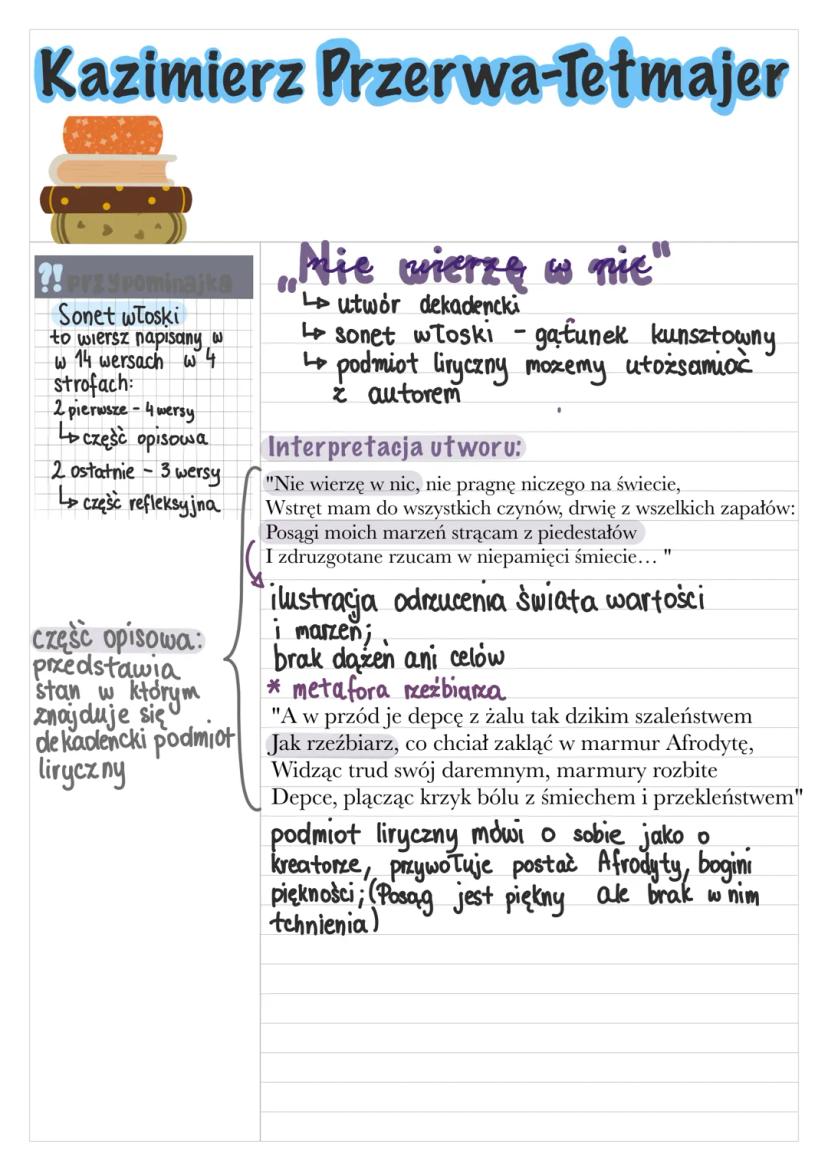 Kazimierz Przerwa-Tetmajer
?! przypominajka
Sonet włoski
to wiersz napisany w
w 14 wersach w 4
strofach:
2 pierwsze - 4 wersy
↳ część opisowa
2 ostatnie - 3 wersy
↳ część refleksyjna
część opisowa:
przedstawia
stan w którym
znajduje się
dekadencki podmiot
liryczny
„Nie wierzę w nic"
↳ utwór dekadencki
↳ sonet włoski - gatunek kunsztowny
↳ podmiot liryczny mozemy utożsamiać
z autorem
Interpretacja utworu:
"Nie wierzę w nic, nie pragnę niczego na świecie,
Wstręt mam do wszystkich czynów, drwię z wszelkich zapałów:
Posągi moich marzeń strącam z piedestałów
I zdruzgotane rzucam w niepamięci śmiecie… "
ilustracja odrzucenia świata wartości
i marzeń;
brak dążeń ani celów
* metafora rzeźbiarza
"A w przód je depcę z żalu tak dzikim szaleństwem
Jak rzeźbiarz, co chciał zakląć w marmur Afrodytę,
Widząc trud swój daremnym, marmury rozbite
Depce, plącząc krzyk bólu z śmiechem i przekleństwem"
podmiot liryczny mówi o sobie jako o
kreatorze, przywołuje postać Afrodyty, bogini
piękności; (Posąg jest piękny ale brak w nim
tchnienia)